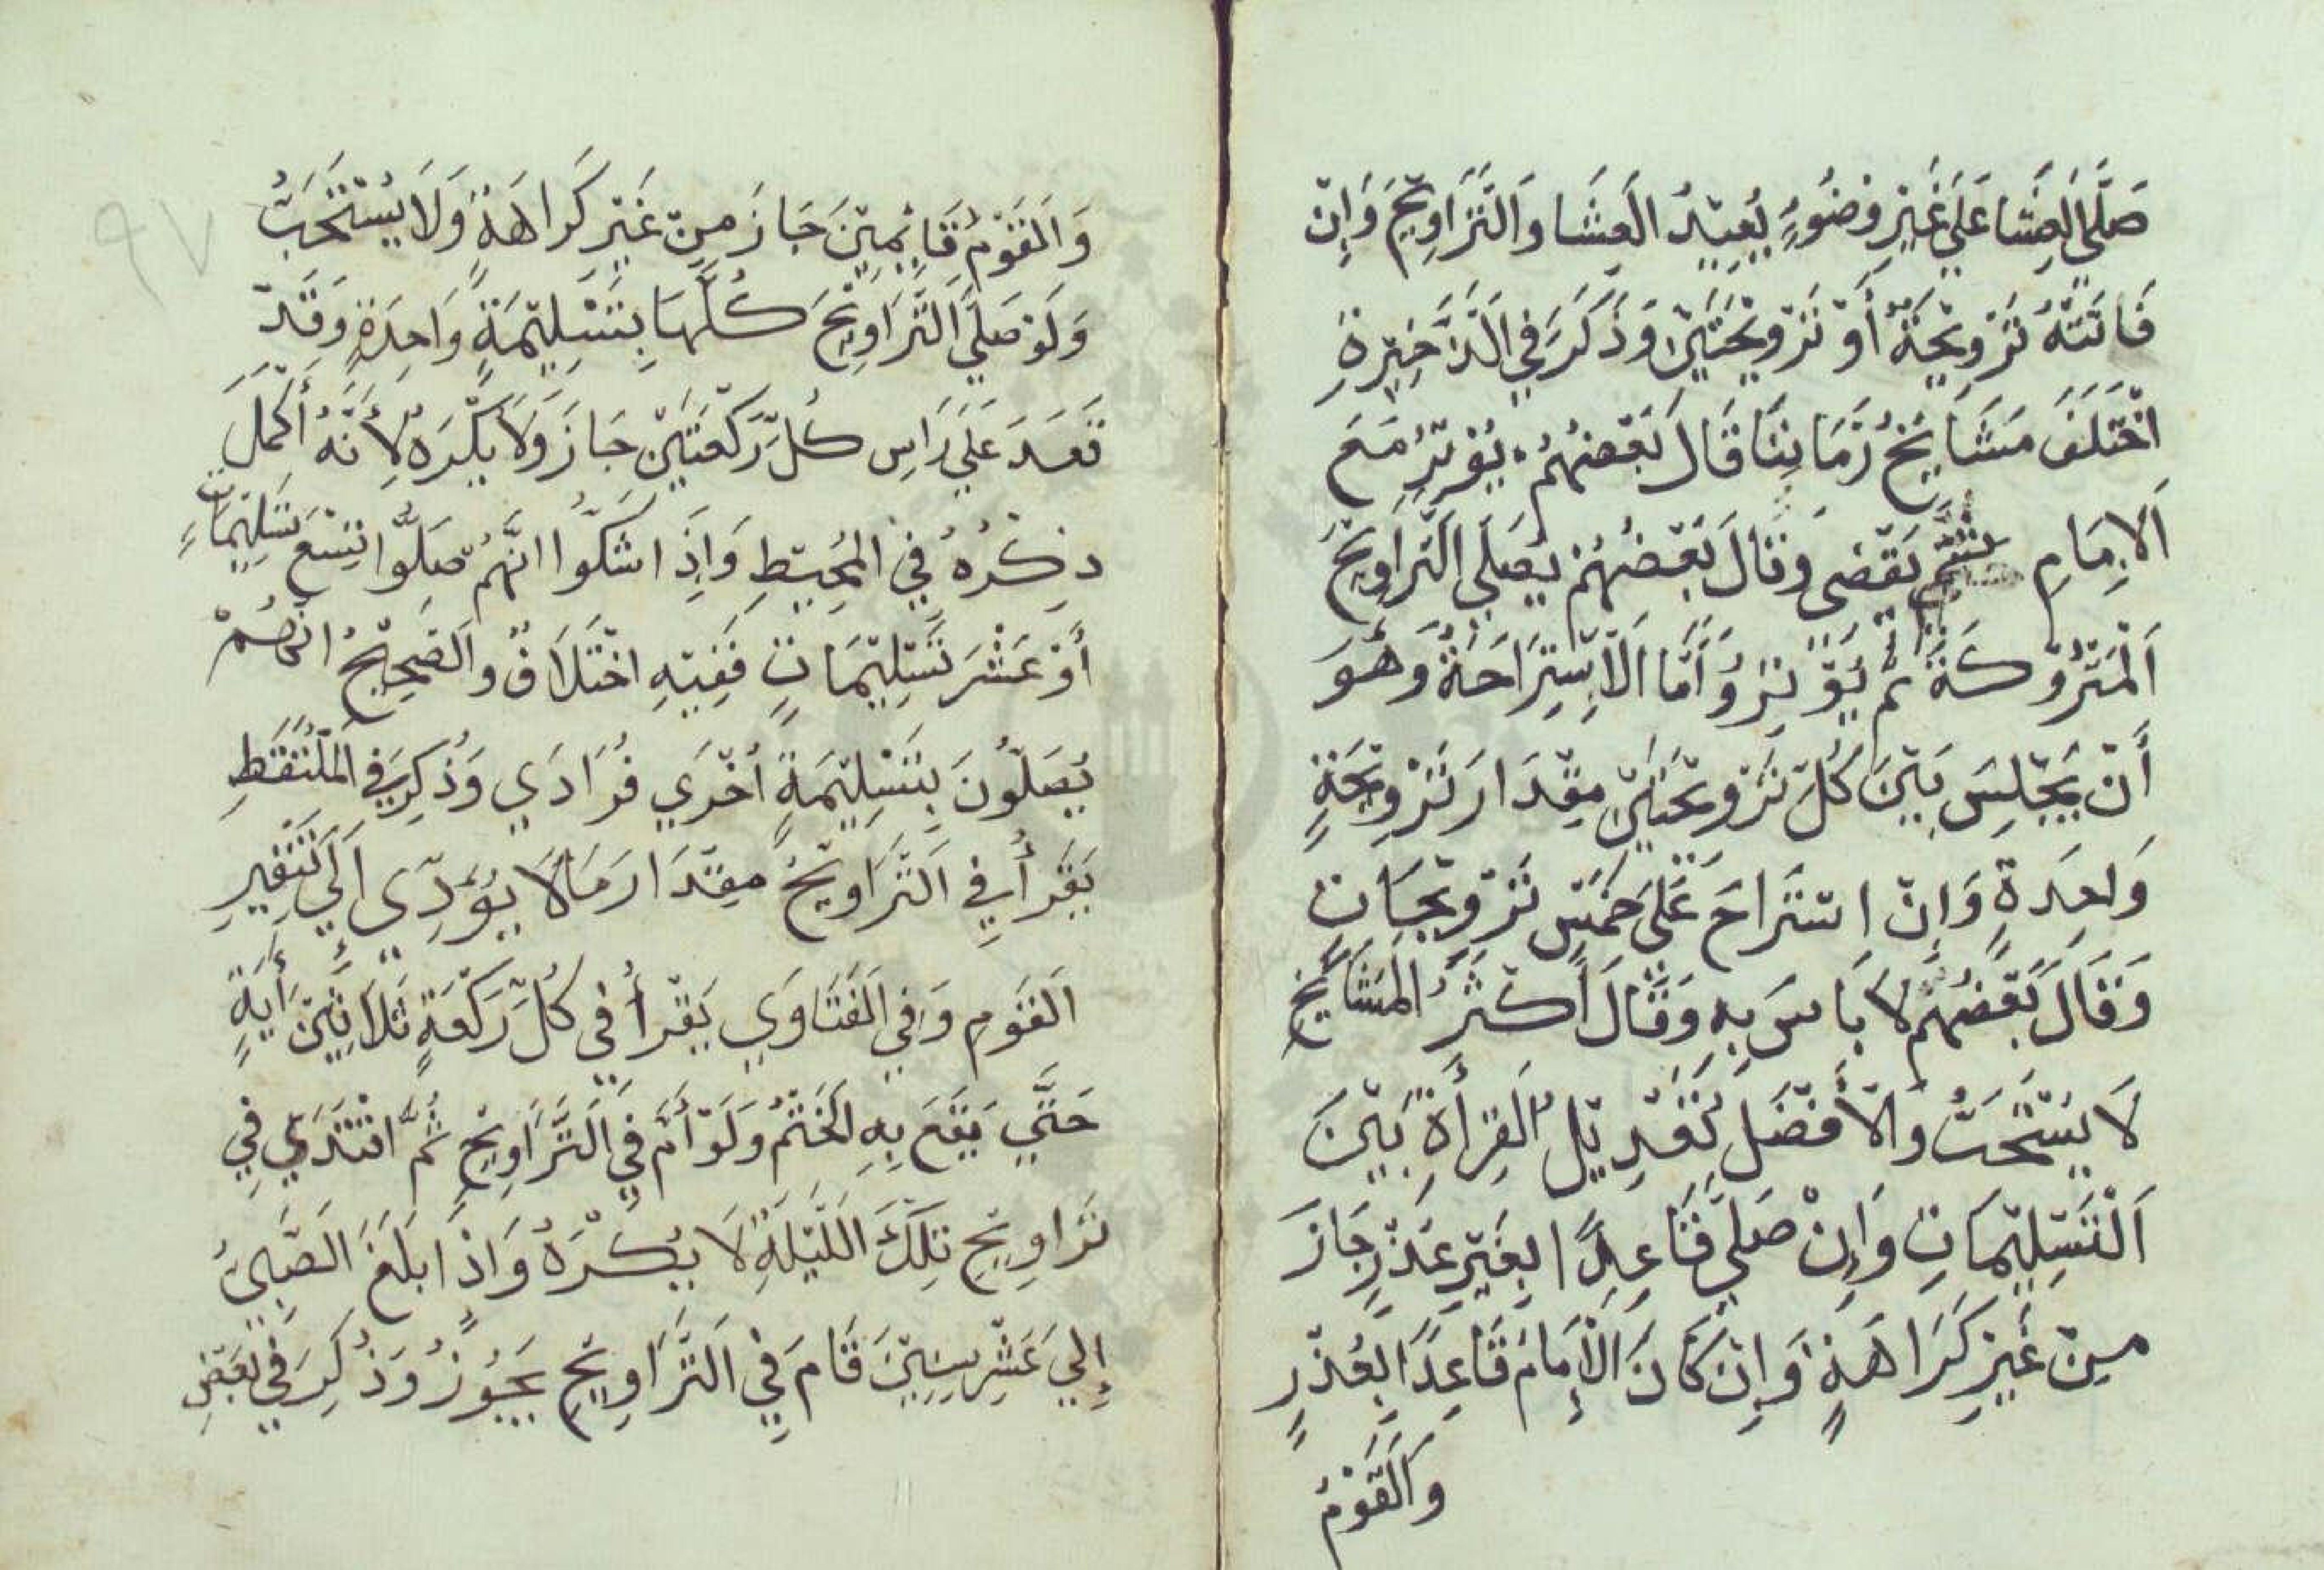 صَلَّي العِشَا عَلَي غَيْرِ وُضُوءٍ يُعِيْدُ العِشَا وَالتَّرَاوِيْحَ وَاِنْ
فَاتَتْهُ تَرْوِيْحَةٌ أَوْ تَرْوِيْحَتَيْنِ وَذَكَرَ فِي الذَّخِيْرَةِ
اخْتَلَفَ مَشَايِخُ زَمَانِنَا قَالَ بَعْضُهُمْ يُوْتِرُ مَعَ
الاِمَامِ ثُمَّ يَقْضِى وَقَالَ بَعْضُهُمْ يُصَلِّي التَّرَاوِيْحَ
المَتْرُوْكَةَ ثُمَّ يُوْتِرُ وَأَمَّا الاِسْتِرَاحَةُ وَهُوَ
أَنْ يَجْلِسَ بَيْنَ كُلِّ تَرْوِيْحَتَيْنِ مِقْدَارَ تَرْوِيْحَةٍ
وَاحِدَةٍ وَاِنْ اسْتَرَاحَ عَلَي خَمْسِ تَرْوِيْحَاتٍ
وَقَالَ بَعْضُهُمْ لَا بَاسَ بِهِ وَقَالَ أَكْثَرُ المَشَايِخِ
لَا يُسْتَحَبُّ وَالأَفْضَلُ تَعْدِيْلُ القِرَأَةِ بَيْنَ
التَّسْلِيْمَاتِ وَاِنْ صَلَّي قَاعِدًا بِغَيْرِ عُذْرٍ جَازَ
مِنْ غَيْرِ كَرَاهَةٍ وَاِنْ كَانَ الإِمَامُ قَاعِدًا بِعُذْرٍ
وَالْقَوْمُ
٩٧
وَالْقَوْمُ قَائِمِيْنَ جَازَ مِنْ غَيْرِ كَرَاهَةٍ وَلَا يُسْتَحَبُّ
وَلَوْ صَلَّي التَّرَاوِيْحَ كُلَّهَا بِتَسْلِيْمَةٍ وَاحِدَةٍ وَقَدْ
قَعَدَ عَلَي رَاسِ كُلِّ رَكْعَتَيْنِ جَازَ وَلَا يُكْرَهُ لِأَنَّهُ أَكْمَلَ
ذِكْرُهُ فِي المُحِيْطِ وَاِذَا شَكُّوا اَنَّهُمْ صَلُّوا تِسْعَ تَسْلِيْمَاتٍ
أَوْ عَشْرَ تَسْلِيْمَاتٍ فَفِيْهِ اخْتِلَافٌ وَالصَّحِيْحُ انَّهُمْ
يُصَلُّوْنَ بِتَسْلِيْمَةٍ أُخْرَي فُرَادَي وَذُكِرَ فِي المُلْتَقَطِ
يَقْرَأُ فِي التَّرَاوِيْحِ مِقْدَارَ مَا لَا يُؤَدِّى اِلَي تَنْفِيْرِ
القَوْمِ وَفِي الفَتَاوِي يَقْرَأُ فِي كُلِّ رَكْعَةٍ ثَلَاثِيْنَ أَيَةٍ
حَتَّي يَقَعَ بِهِ الخَتْمُ وَلَوْ أَمَّ فِي التَّرَاوِيْحِ ثُمَّ اقْتَدَي فِي
تَرَاوِيْحِ تِلْكَ اللَّيْلَةِ لَا يُكْرَهُ وَاِذَا بَلَغَ الصَّبِيُّ
إِلَي عَشْرِ سِنِيْنَ قَامَ فِي التَّرَاوِيْحِ يَجُوْزُ وَذُكِرَ فِي بَعْضِ